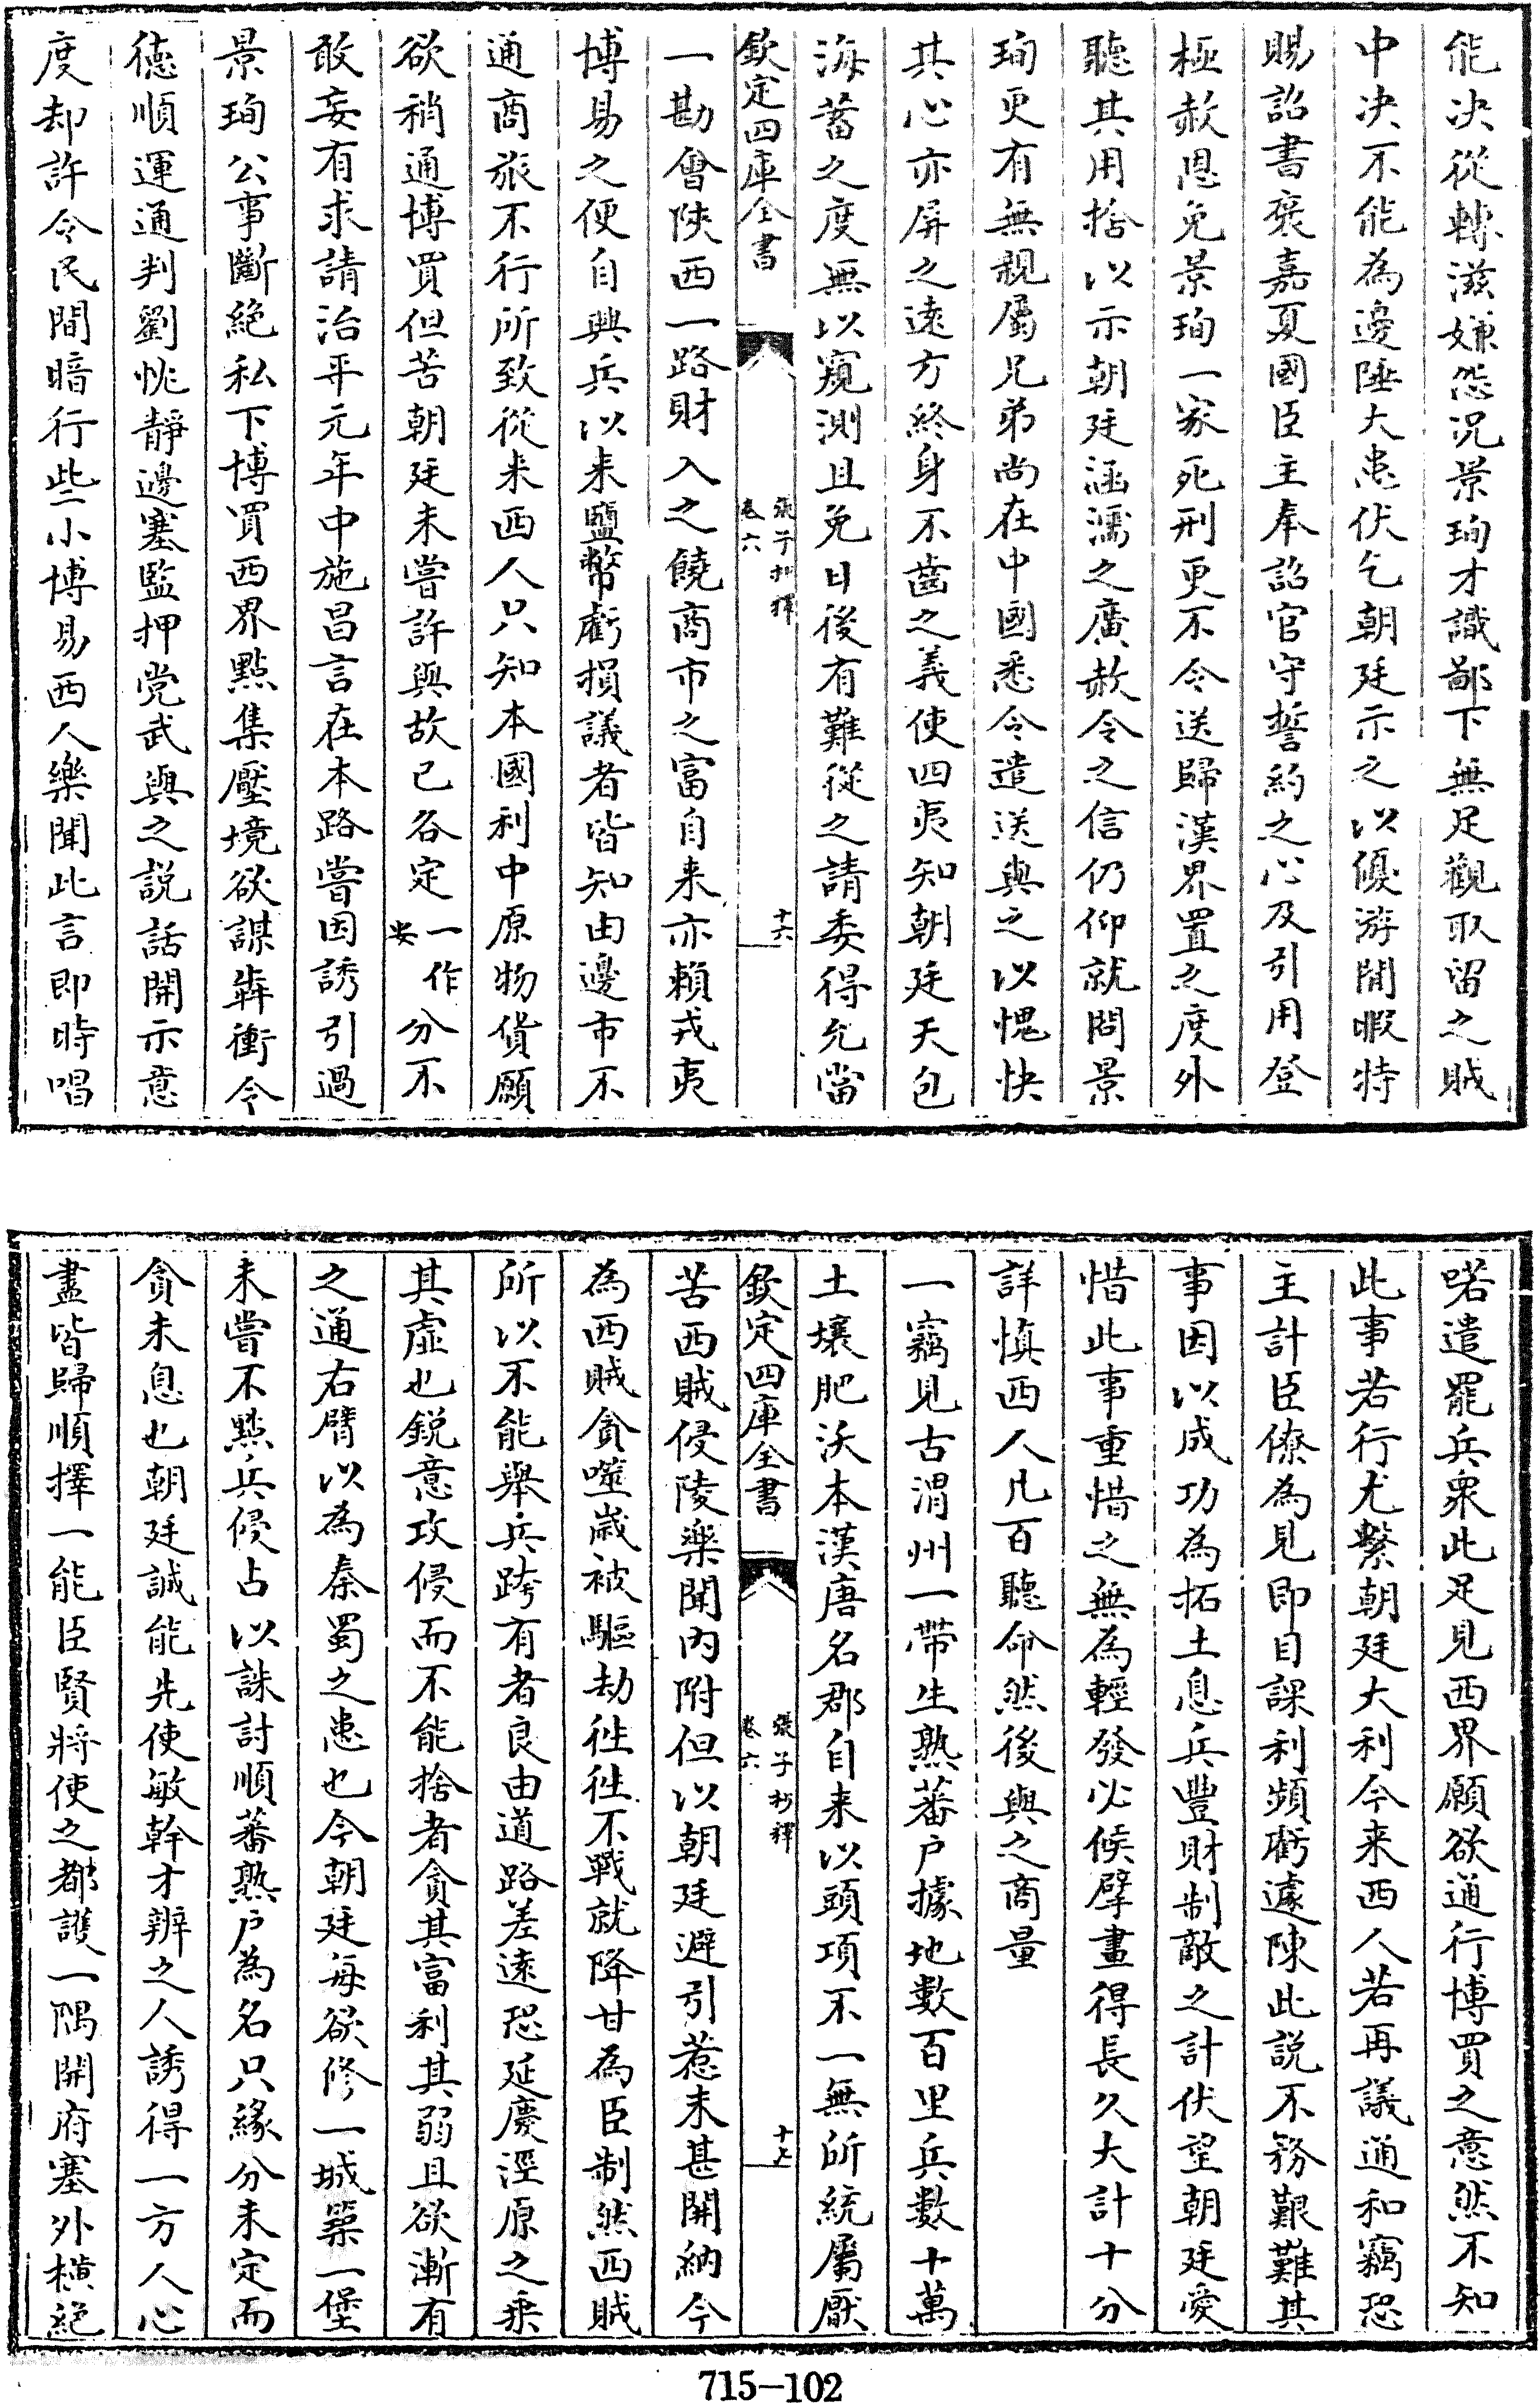 能决從轉滋嫌怨況景珣才識鄙下無足觀取留之賊
中决不能為邊陲大患伏乞朝廷示之以優游閒暇特
賜詔書褒嘉夏國臣主奉詔官守誓約之心及引用登
極赦恩免景珣一家死刑更不令送歸漢界置之度外
聽其用捨以示朝廷涵濡之廣赦令之信仍仰就問景
珣更有無親屬兄弟尚在中國悉令遣送與之以愧快
其心亦屏之逺方終身不齒之義使四夷知朝廷天包
海蓄之度無以窺測且免日後有難從之請委得允當
欽定四庫全書
張子抄釋
卷六
十六
一勘會陜西一路財入之饒商市之富自来亦頼戎夷
博易之便自興兵以来鹽幣虧損議者皆知由邊市不
通商旅不行所致從来西人只知本國利中原物貨願
欲稍通博買但苦朝廷未嘗許與故已各定一作分安不
敢妄有求請治平元年中施昌言在本路嘗因誘引過
景珣公事斷絶私下博買西界㸃集壓境欲謀犇衝令
徳順運通判劉忱静邊塞監押党武與之説話開示意
度却許令民間暗行些小博易西人樂聞此言即時唱
喏遣罷兵衆此足見西界願欲通行博買之意然不知
此事若行尤繫朝廷大利今来西人若再議通和竊恐
主計臣僚為見即目課利頻虧遽陳此説不務艱難其
事因以成功為拓土息兵豐財制敵之計伏望朝廷愛
惜此事重惜之無為輕發必候擘畫得長久大計十分
詳慎西人凡百聽命然後與之商量
一竊見古渭州一帶生熟蕃户據地數百里兵數十萬
土壤肥沃本漢唐名郡自来以頭項不一無所統屬厭
欽定四庫全書
張子抄釋
卷六
十七
苦西賊侵陵樂聞内附但以朝廷避引惹未甚開納今
為西賊貪噬嵗被驅劫徃徃不戰就降甘為臣制然西賊
所以不能舉兵跨有者良由道路差逺恐延慶涇原之乗
其虚也鋭意攻侵而不能捨者貪其富利其弱且欲漸有
之通右臂以為秦蜀之患也今朝廷每欲修一城築一堡
未嘗不㸃兵侵占以誅討順蕃熟户為名只緣分未定而
貪未息也朝廷誠能先使敏幹才辨之人誘得一方人心
盡皆歸順擇一能臣賢將使之都䕶一隅開府塞外横絶
715-102